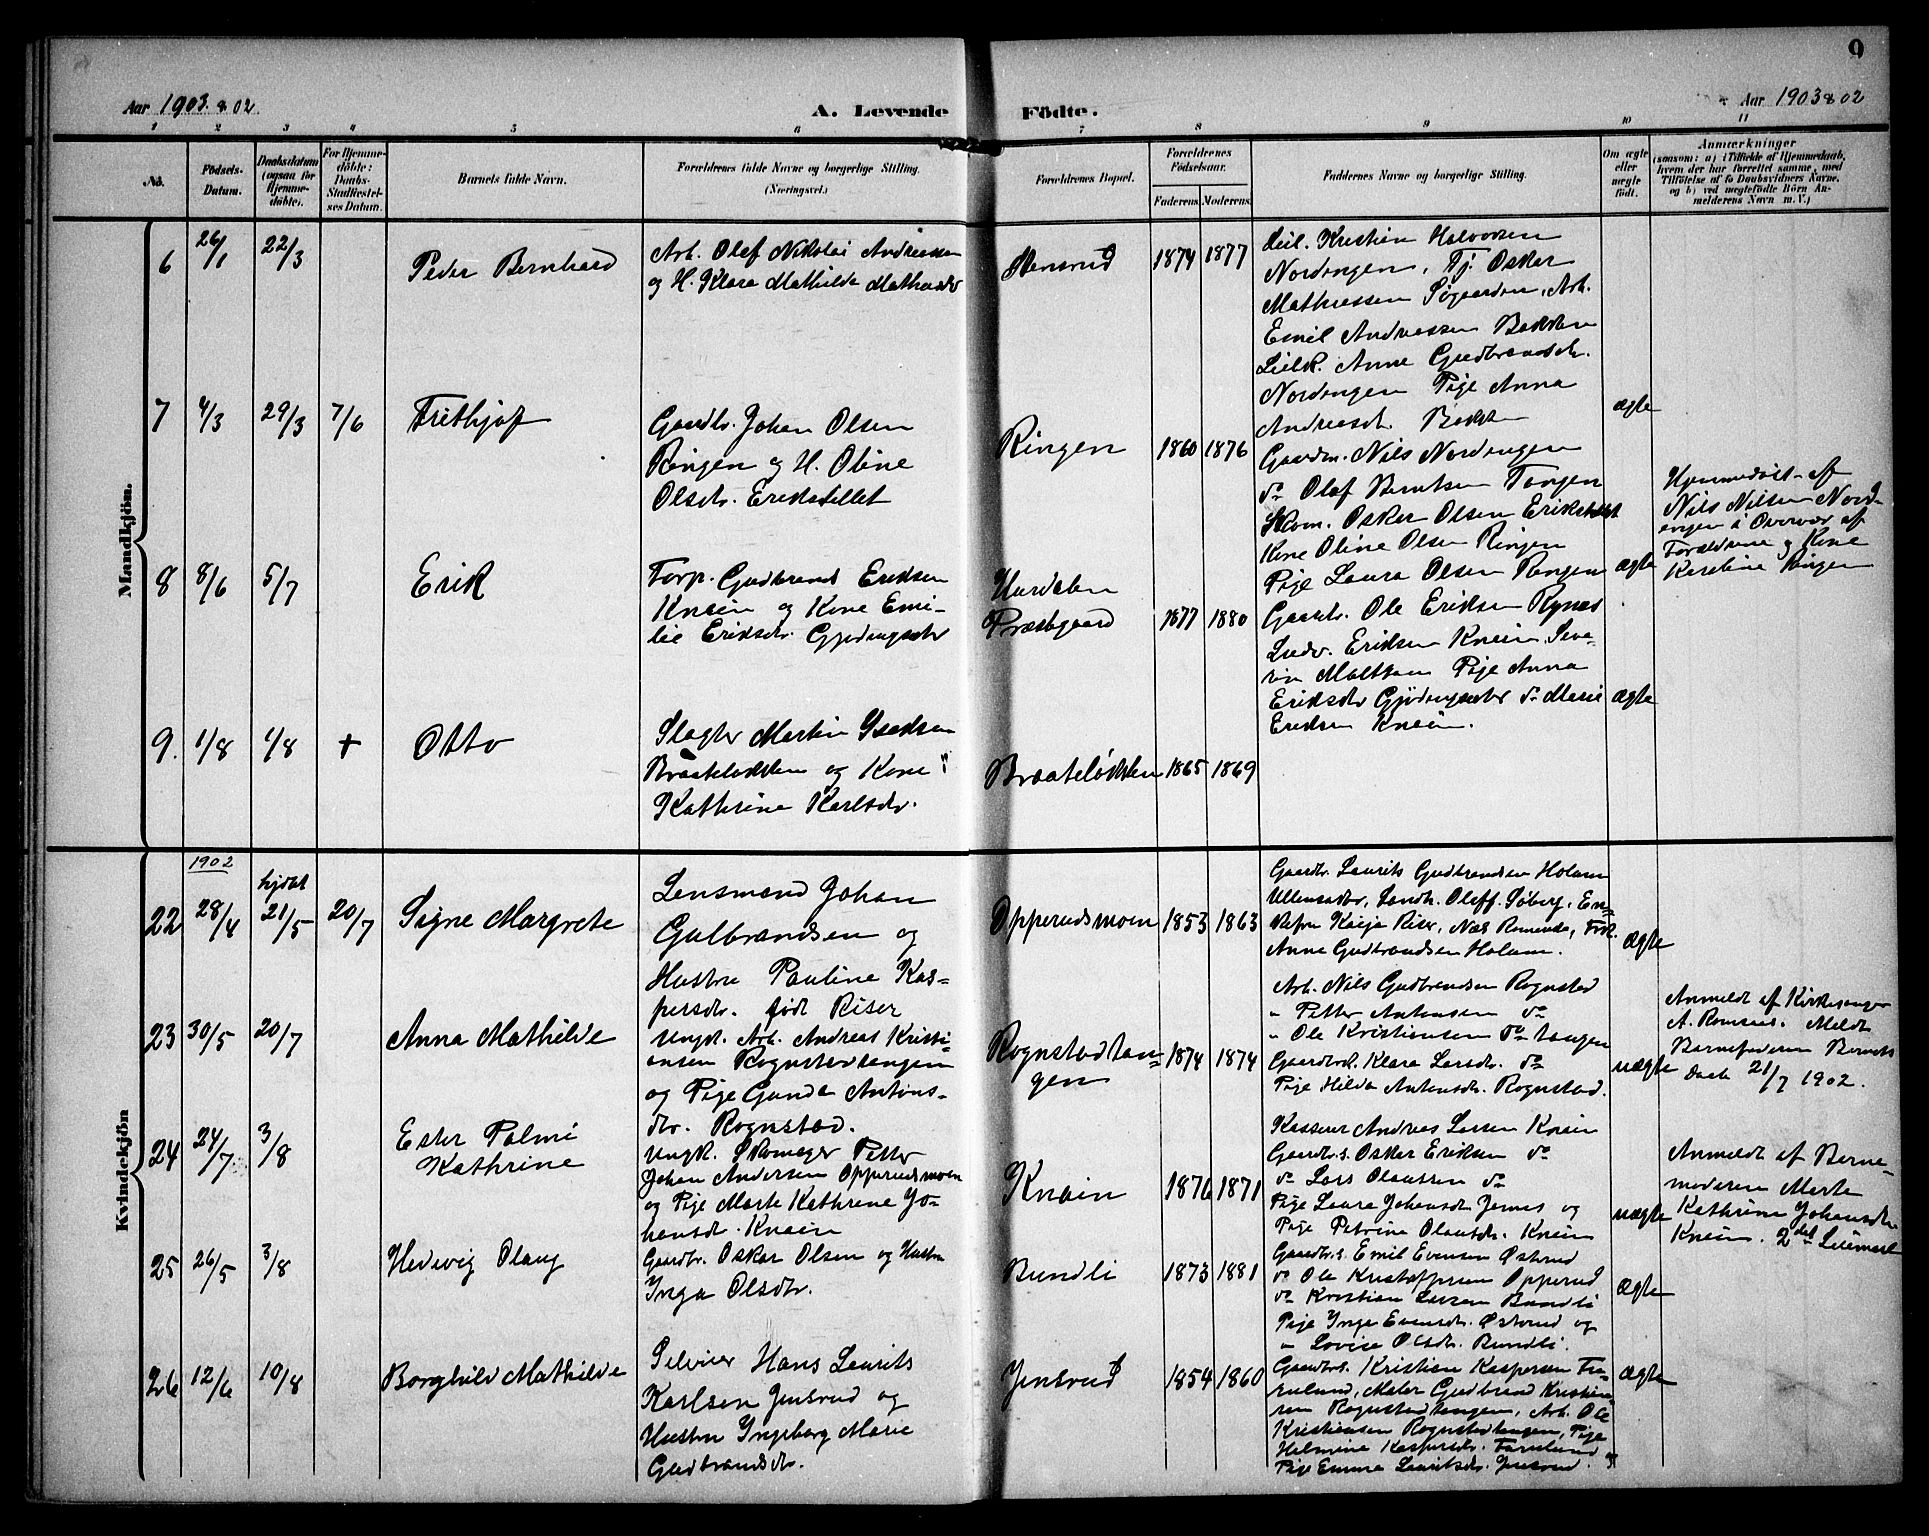 9
Aar 1903 & 02
A. Levende
Födte.
Aar 1903 & 02
1 2 3 4 5 6 7 8 9 10 11
No.
Födsels-
Datum.
Daabsdatum
(ogsaa for
Hjemme-
döbte).
For Hjemme-
döbte:
Daabs-
Stadfæstel-
ses Datum.
Barnets fulde Navn.
Forældrenes fulde Navne og borgerlige Stilling.
(Næringsvei.)
Forældrenes Bopæl.
Forældrenes
Födselsaar.
Faderens. Moderens.
Faddernes Navne og borgerlige Stilling.
Om ægte
eller
uægte
födt.
Anmærkninger
(saasom: a) i Tilfælde af Hjemmedaab,
hvem der har forrettet samme, med
Tilföielse af to Daabsvidners Navne,
og b) ved uægtefödte Börn An-
melderens Navn m. V.)
Mandkjön.
6 26/1 22/3
Peder Bernhard
Arb. Olaf Nikolai Andreassen
og H. Klara Mathilde Mathiasdr
Stensrud
1874 1877
Leil. Kristian Halvorsen
Nordengen, Tj. Oskar
Mathiessen Søgaarden, Arb.
Emil Andreassen Bakken
Leilk. Anne Gudbrandsdr.
Nordengen Pige Anna
Andreasdr. Bakken
ægte
7 4/3 29/3 7/6
Frithjof
Gaardbr. Johan Olsen
Ringen og H. Oline
Olsdr. Erikstellet
Ringen
1860 1876
Gaardm. Nils Nordengen
do Olaf Berntsen Tangen
Skom. Oskar Olsen Erikstellet
Kone Oline Olsen Ringen
Pige Laura Olsen Ringen
ægte
Hjemmedøbt af
Nils Nilsen Nord-
engen i Overvær af
Forældrene og Kone
Karoline Ringen
8 8/6 5/7
Erik
Torp. Gudbrand Eriksen
Knain og Kone Emi-
lie Eriksdr. Gjødingsætr
Hurdalen
Præstegaard
1877 1880
Gaardbr. Ole Eriksen Rynes
Ludv. Eriksen Knain, Seve-
rin Madtsen Pige Anna
Eriksdr Gjødingsæter do Marie
Eriksen Knain.
ægte
9. 1/8 1/8 +
Otto
Slagter Martin Isaksen
Braateløkken og Kone
Kathrine Karlsdr.
Braateløkken
1865 1869
Kvindekjön
1902
22 28/4 hjdøbt 21/5 20/7
Signe Margrete
Lensmand Johan
Gulbrandsen og
Hustru Pauline Kas-
persdr. født Riser
Opperudsmoen
1853 1863
Gaardbr. Laurits Gudbrandsen Holum
Ullensaker, Landh. Oluff. Søberg, En-
kefru Kaija Riser, Næs Romerike, Frk.
Anna Gudbrandsen Holum.
ægte
23 30/5 20/7
Anna Mathilde
Ungk. Arb. Andreas Kristi-
ansen Rognstadtangen
og Pige Gunda Antons-
dr. Rognstad.
Rognstadtan-
gen
1874 1874
Arb. Nils Gudbrandsen Rognstad
" Petter Antonsen do
" Ole Kristiansen do tangen
Gaardbrk. Klara Larsdr. do
Pige Hilda Antonsdr. Rognstad.
uægte
Anmeldt af Kirkesanger
A. Romsaas. Meldt
Barnefaderen Barnets
Daab 21/7 1902.
24 24/7 3/8
Ester Palmi
Kathrine
Ungk. Skomager Petter
Johan Andersen Opperudsmoen
og Pige Marte Kathrine Jo-
hansdr. Knain
Knain
1876 1871
Kasserer Andreas Larsen Knain
Gaardbrs. Oskar Eriksen do
do Lars Olaussen do
Pige Laura Johansdr Jernes og
Pige Petrine Olausdr. Knain
uægte
Anmeldt af Barne-
moderen Marte
Kathrine Johansdr.
Knain. 2det Leiermaal
25 26/5 3/8
Hedevig Olaug
Gaardbr. Oskar Olsen og Hustru
Inga Olsdtr.
Bundli
1873 1881
Gaardbr.s. Emil Evensen Østerud
do Ole Kristoffersen Opperud
do Kristian Larsen Bundli
Pige Inga Evensdr. Østerud og
" Lovise Olsdr. Bundli.
ægte
26 12/6 10/8
Borghild Mathilde
Selveier Hans Laurits
Karlsen Jensrud og
Hustru Ingeborg Marie
Gudbrandsdr.
Jensrud
1854 1860
Gaardbrs. Kristian Kaspersen Fu-
rulund, Maler Gudbrand Kristian-
sen Rognstadtangen, Arb. Ole
Kristiansen Rognstadtangen, Pige
Helmine Kaspersdr. Furulund
Pige Emma Lauritsdr. Jensrud.
ægte